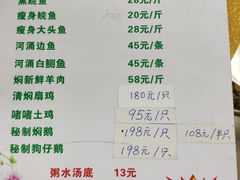 黑鲩鱼 28元/斤
瘦身鲩鱼 20元/斤
瘦身大头鱼 28元/斤
河涌边鱼 45元/条
河涌白鲫鱼 45元/条
焖新鲜羊肉 58元/斤
清焖扇鸡 180元/只
啫啫土鸡 95元/只
秘制焖鹅 198元/只 108元/半只
秘制狗仔鹅 198元/只
粥水汤底 13元